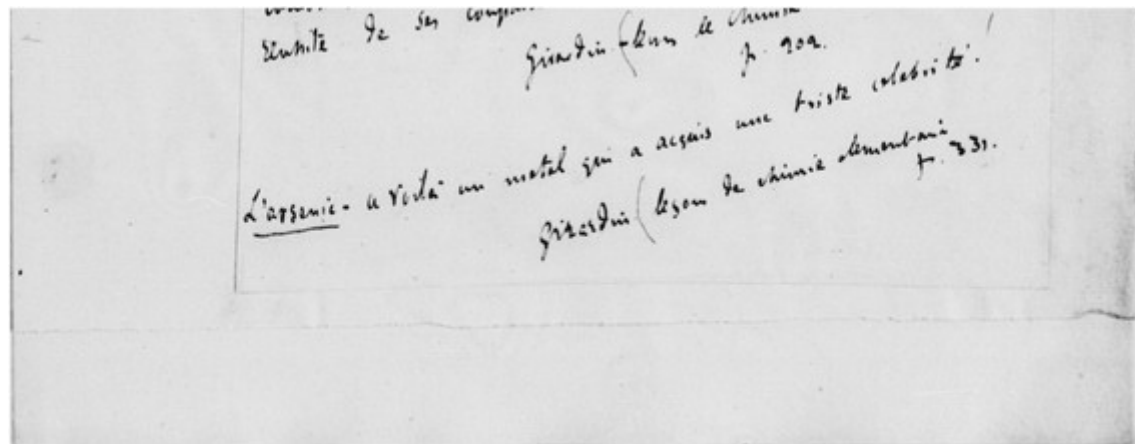 réussite de ses
Girardin (leçons de chimie
p. 202.
L'arsenic - « Voilà un métal qui a acquis une triste célébrité !
Girardin (leçons de chimie élémentaire
p. 331.